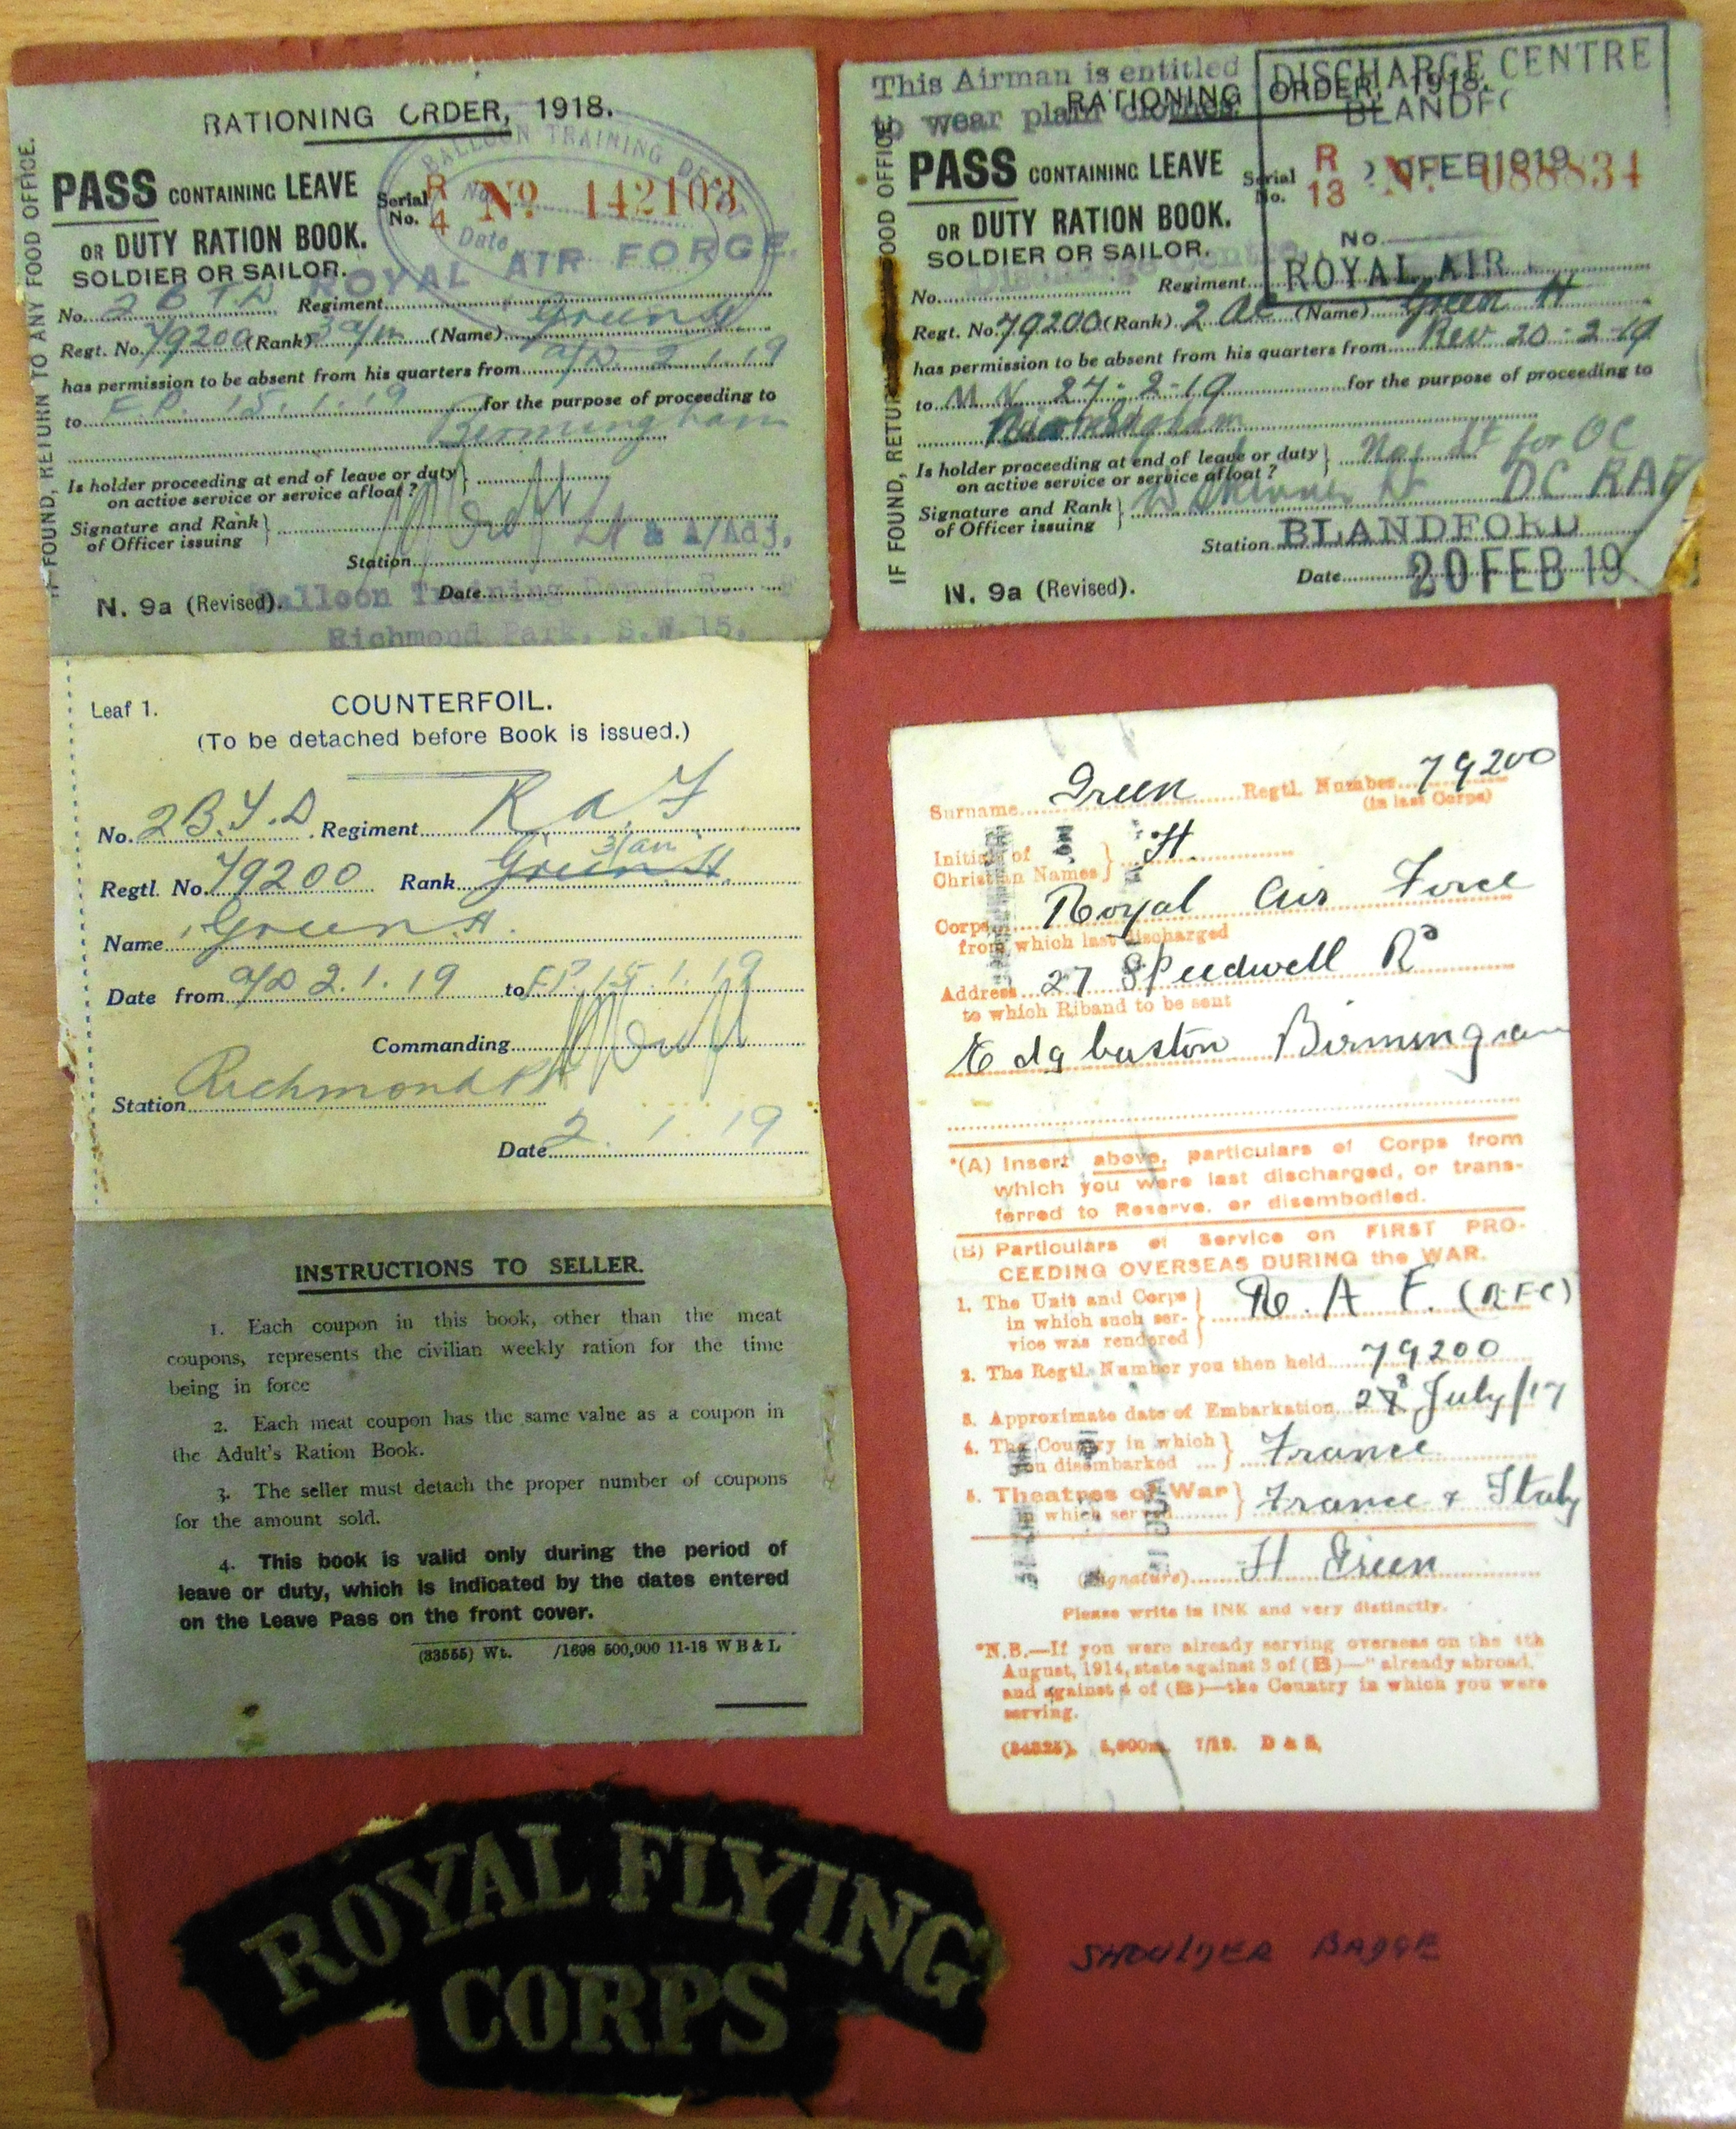 IF FOUND, RETURN TO ANY FOOD OFFICE.
RATIONING ORDER, 1918.
BALLOON TRAINING
PASS CONTAINING LEAVE
OR DUTY RATION BOOK.
SOLDIER OR SAILOR.
Serial No. R 4 No. 142103
No.
Date
ROYAL AIR FORCE.
No. 2 B T D Regiment
Regt. No. 79200 (Rank) 3 a/m (Name) Green H.
has permission to be absent from his quarters from a/D 2.1.19
to E.P. 15.1.19 for the purpose of proceeding to
Birmingham
Is holder proceeding at end of leave or duty
on active service or service afloat?
Signature and Rank
of Officer issuing Lt & A/Adj.
Station
Date
N. 9a (Revised).
Balloon Training Depot
Richmond Park, S.W.15.
Leaf 1.
COUNTERFOIL.
(To be detached before Book is issued.)
No. 2 B.T.D. Regiment R a F
3/am
Regtl. No. 79200 Rank Green H.
Name Green H.
Date from a/D 2.1.19 to E.P. 15.1.19
Commanding
Station Richmond Pk
Date 2.1.19
INSTRUCTIONS TO SELLER.
1. Each coupon in this book, other than the meat
coupons, represents the civilian weekly ration for the time
being in force
2. Each meat coupon has the same value as a coupon in
the Adult's Ration Book.
3. The seller must detach the proper number of coupons
for the amount sold.
4. This book is valid only during the period of
leave or duty, which is indicated by the dates entered
on the Leave Pass on the front cover.
(33555) Wt. /1698 500,000 11-18 W B & L
ROYAL FLYING
CORPS
This Airman is entitled
to wear plain clothes.
DISCHARGE CENTRE
BLANDFO
20 FEB 1919
No.
ROYAL AIR
IF FOUND, RETURN FOOD OFFICE
RATIONING ORDER, 1918.
PASS CONTAINING LEAVE
OR DUTY RATION BOOK.
SOLDIER OR SAILOR.
Serial No. R 13 No. 088834
No. Regiment
Regt. No. 79200 (Rank) 2 AC (Name) Green H
has permission to be absent from his quarters from Rev 20-2-19
to M N 27-2-19 for the purpose of proceeding to
Birmingham
Is holder proceeding at end of leave or duty
on active service or service afloat? No. Lt for OC
Signature and Rank
of Officer issuing DC RAF
Station BLANDFORD
Date 20 FEB 19
N. 9a (Revised).
Surname Green Regtl. Number 79200
(in last Corps)
Initials of
Christian Names H.
Corps Royal Air Force
from which last discharged
Address 27 Speedwell Rd
to which Riband to be sent
Edgbaston Birmingham
*(A) Insert above, particulars of Corps from
which you were last discharged, or trans-
ferred to Reserve, or disembodied.
(B) Particulars of Service on FIRST PRO-
CEEDING OVERSEAS DURING the WAR.
1. The Unit and Corps
in which such ser-
vice was rendered R.A.F. (RFC)
2. The Regtl. Number you then held 79200
3. Approximate date of Embarkation 28 July/17
4. The Country in which
you disembarked ... France
5. Theatres of War
in which served France & Italy
(Signature) H Green
Please write in INK and very distinctly.
*N.B.—If you were already serving overseas on the 4th
August, 1914, state against 3 of (B)—"already abroad,"
and against 4 of (B)—the Country in which you were
serving.
(24325). 5,000m. 7/19. D & S.
SHOULDER BADGE